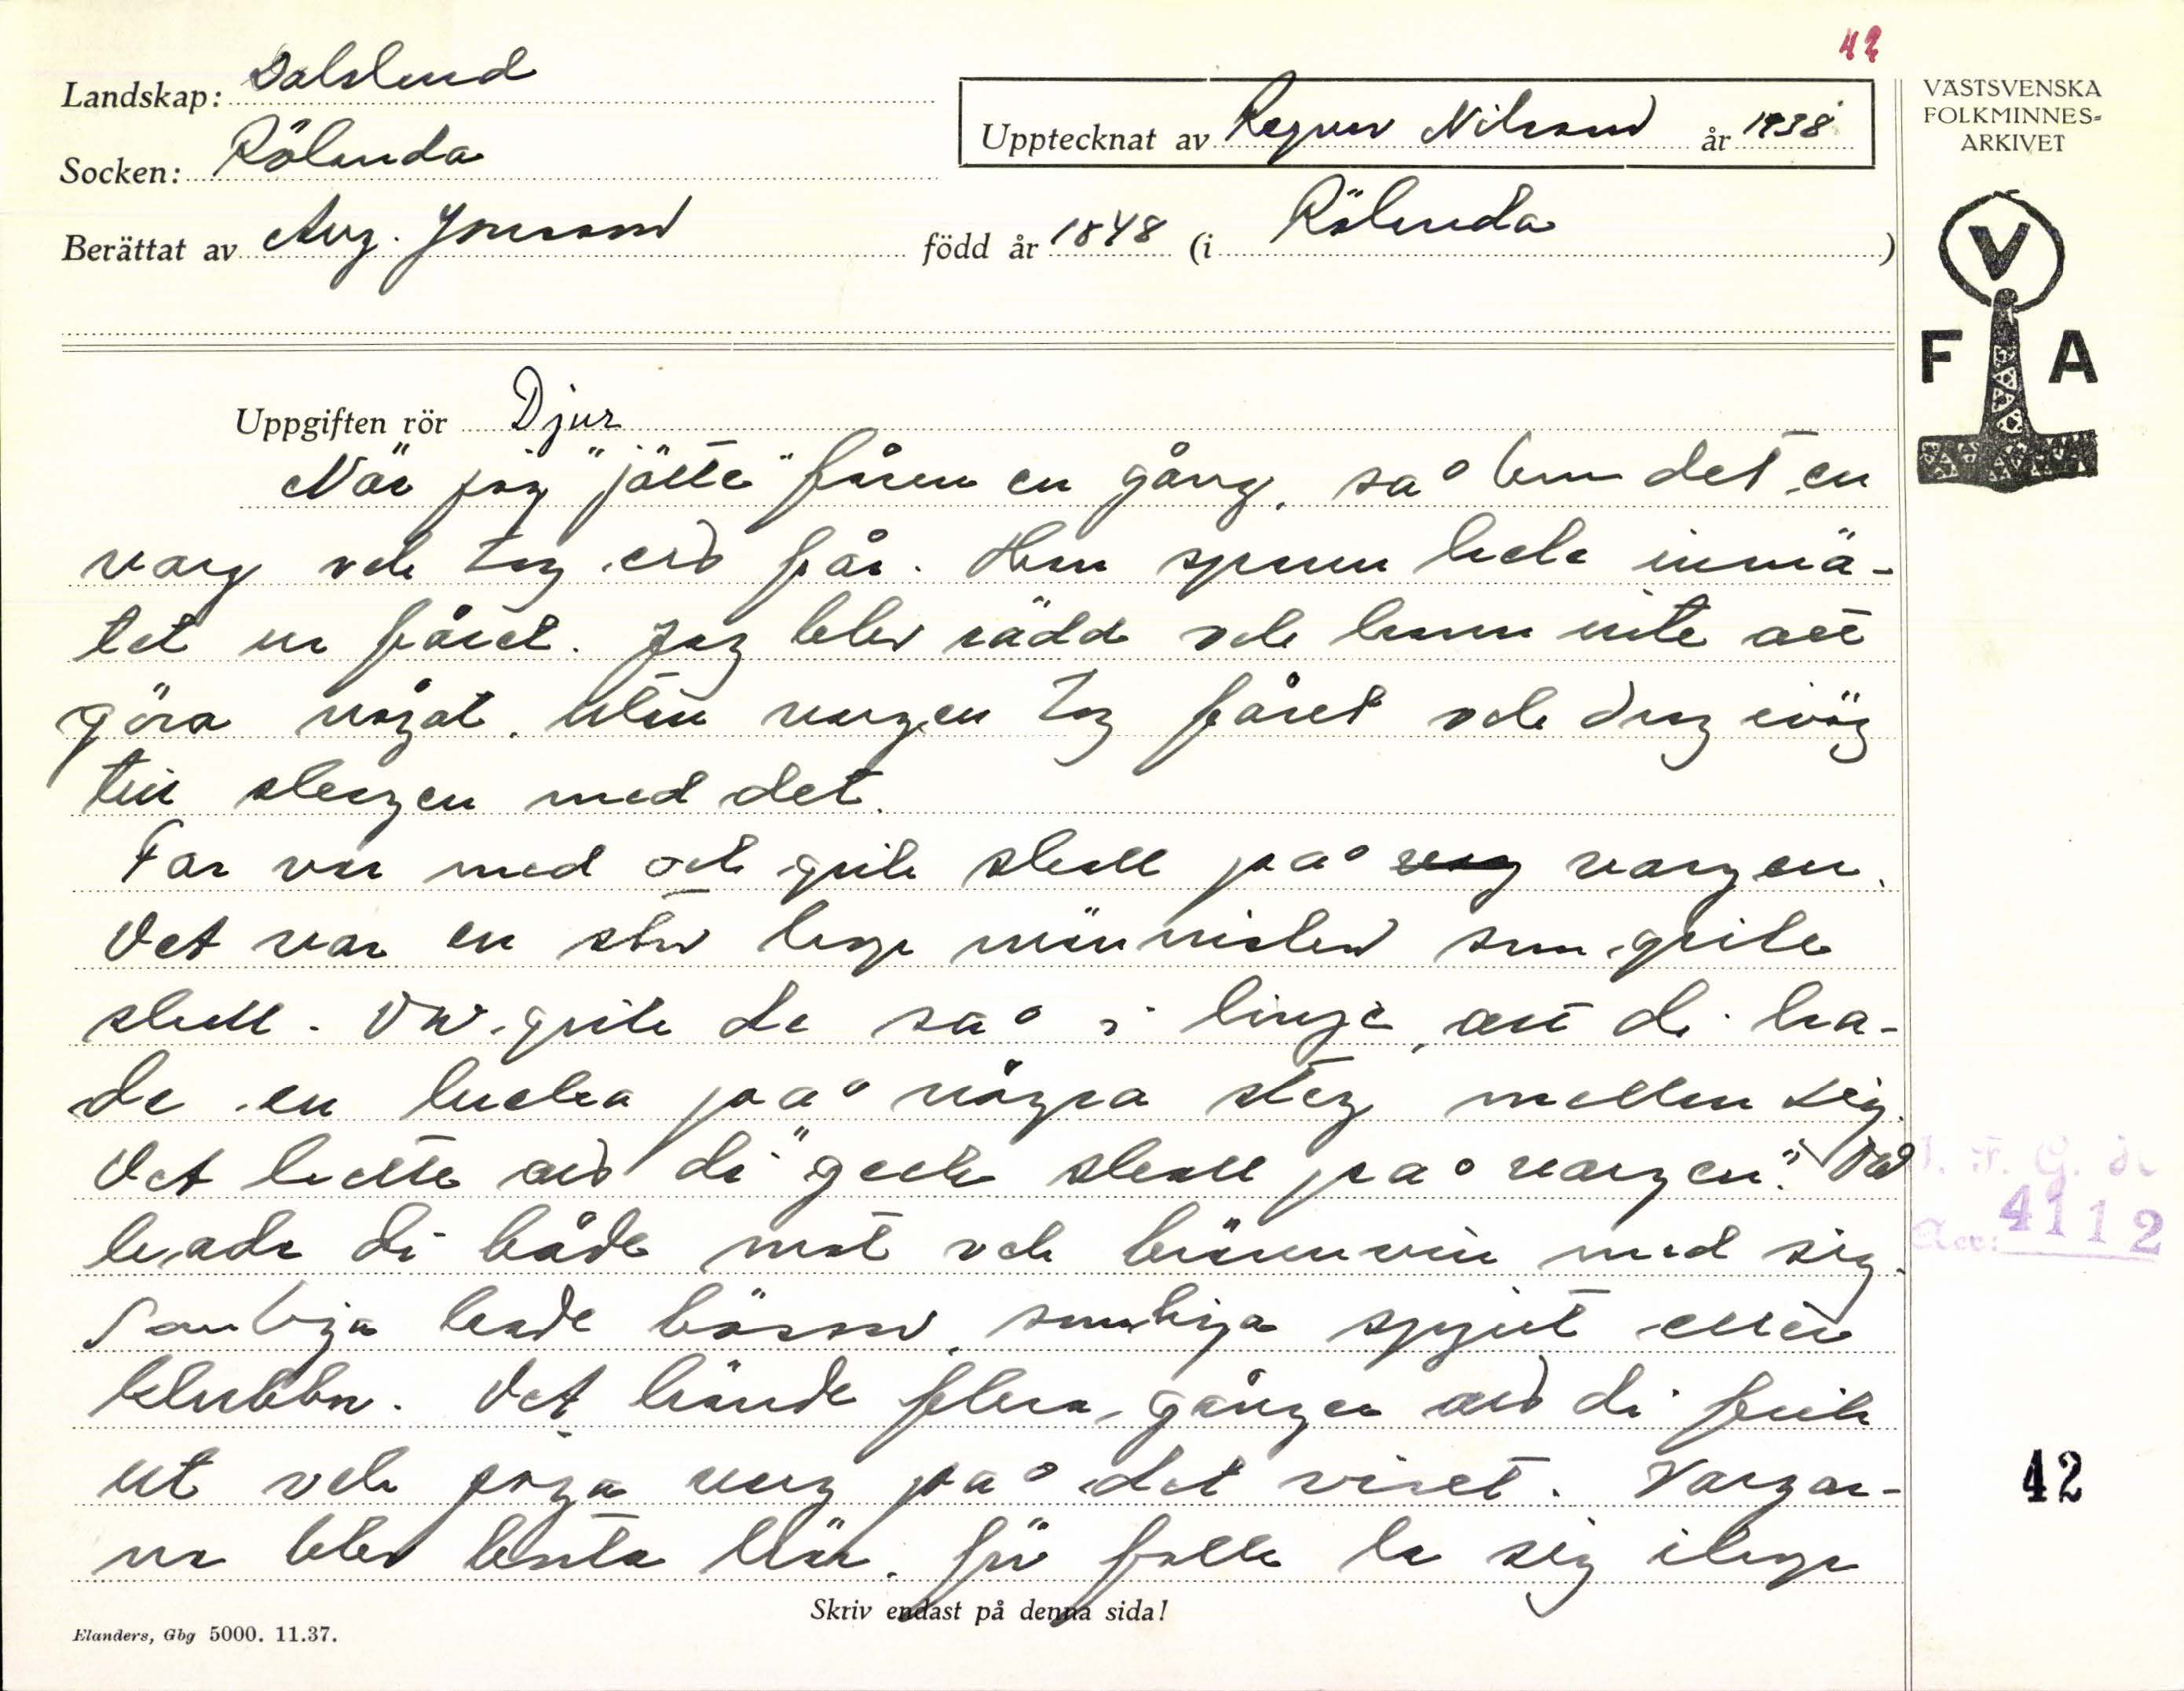 42
Landskap: Dalsland
Upptecknat av Ragnar Nilsson år 1938
VÄSTSVENSKA
FOLKMINNES-
ARKIVET
Socken: Rölanda
Berättat av Aug. Jonsson född år 1848 (i Rölanda)
V
F A
Uppgiften rör Djur
När jag "jätte" fåren en gång, så kom det en
varg och tog ett får. Han sprang hela inmä-
tet ur fåret. Jag blev rädd och kunne inte att
göra något, utan vargen tog fåret och drog iväg
till skogen med det.
Far var med och gick skall på vargen.
Det var en stor hop människor som gick
skall. Di gick då så i linje, att di ha-
de en lucka på några steg mellan sig.
Det hette att di "geck skall på vargen". Då
hade di både mat och brännvin med sig.
Somliga hade bössor, somliga spjut eller
klubbor. Det hände flera gånger att di fick
ut och jaga varg på det viset. Vargar-
na blev borta här, för folk la sig ihop
J. F. G. s
Acc: 4112
42
Skriv endast på denna sida!
Elanders, Gbg 5000. 11.37.